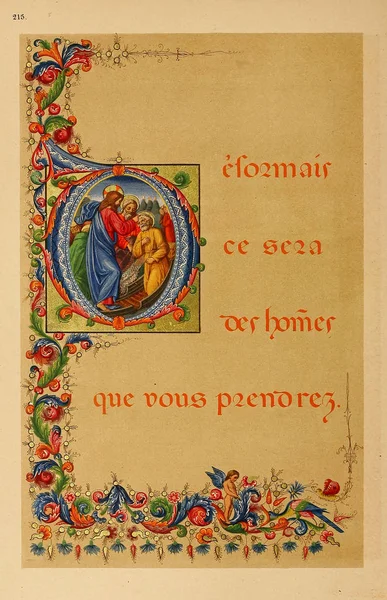 215.
Désormais
ce sera
des hom̃es
que vous prendrez.